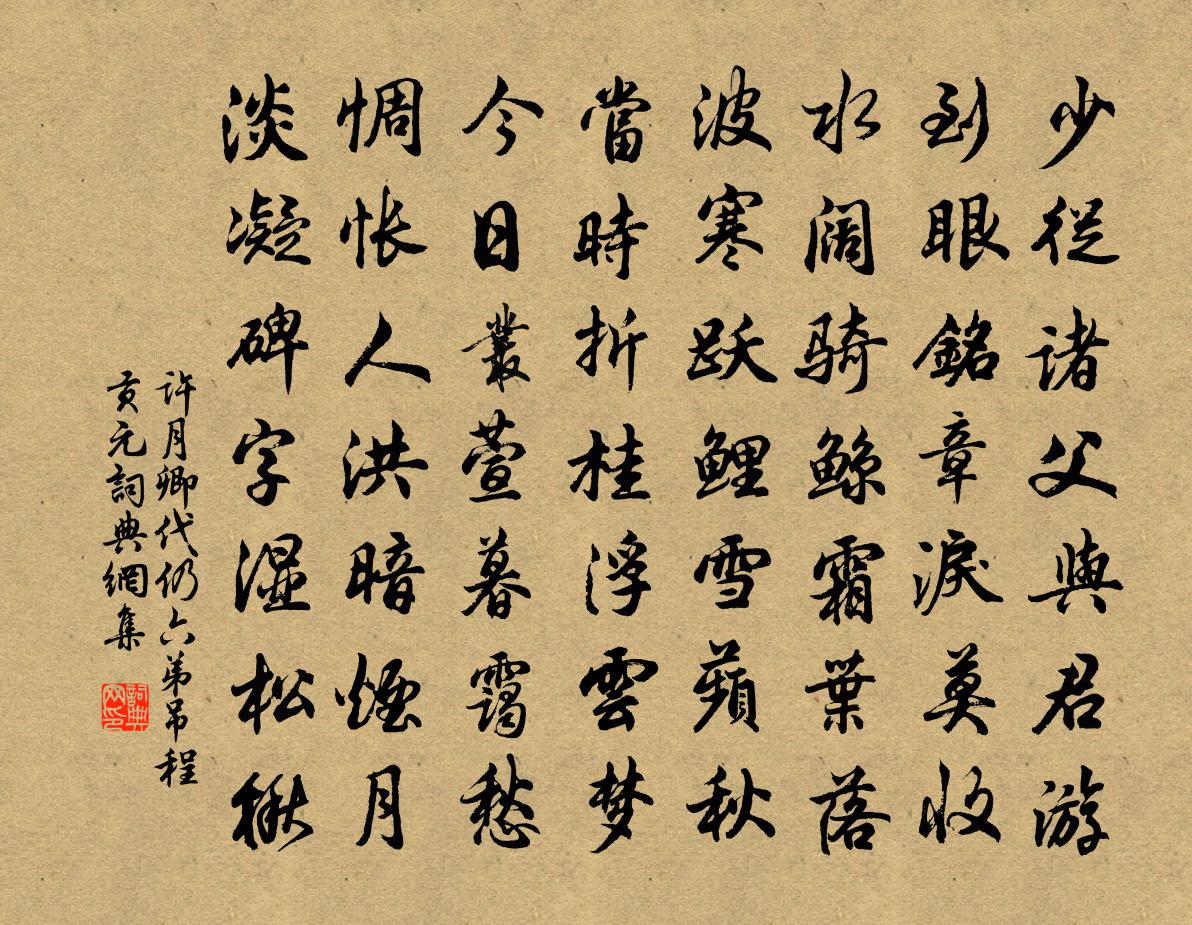 少從諸父與君游
到眼銘章淚莫收
水阔骑鲸霜葉落
波寒跃鲤雪蘋秋
當時折桂浮雲梦
今日叢萱暮靄愁
惆怅人洪暗煙月
淡凝碑字濕松楸
許月卿代仍六弟吊程
贡元詞典網集
詞典网印